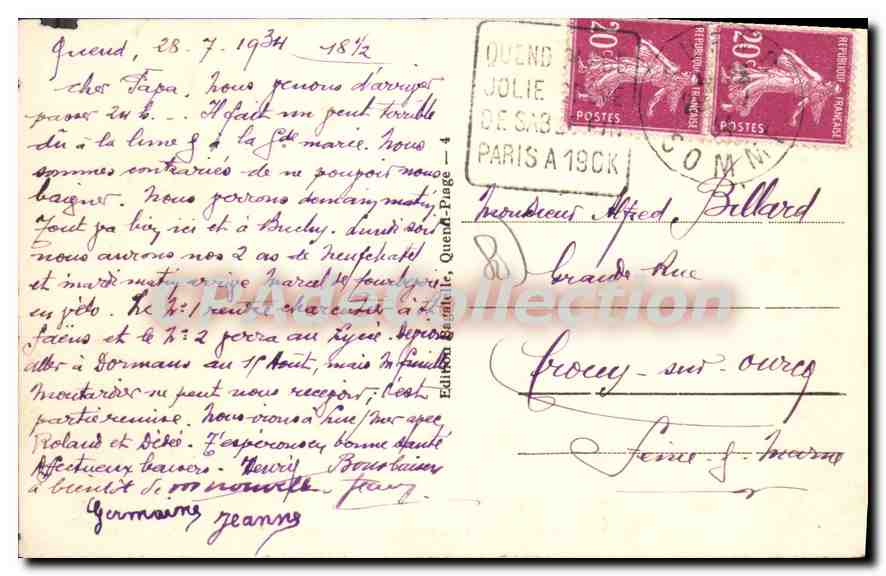 Quend, 28-7-1934 18 1/2
cher Papa. Nous venons d'arriver
passer 24 h. .. Il fait un vent terrible
dû à la lune & à la Gde marée. Nous
sommes contrariés de ne pouvoir nous
baigner. Nous verrons demain matin.
Tout va bien ici et à Buchy. Lundi soir
nous aurons nos 2 as de Neufchatel
et mardi matin arrive Marcel de
en vélo. Le No 1 rentre charcutier à
et le No 2 verra au Lycée.
aller à Dormans au 15 Août, mais M
Montardier ne peut nous recevoir, c'est
partie remise. Nous irons à mer avec
Roland et Dédé. J'espérons en bonne santé
Affectueux baisers. Henri Bons baisers
à bientôt de vos nouvelles
Germaine Jeanne
Edition Bagatelle, Quend-Plage — 4
QUEND
JOLIE
DE SABLE FIN
PARIS A 190K
20c 20c
REPUBLIQUE FRANÇAISE
POSTES POSTES
SOMME
Monsieur Alfred Billard
Grande Rue
Crouy-sur-Ourcq
Seine & Marne
CPA de Collection